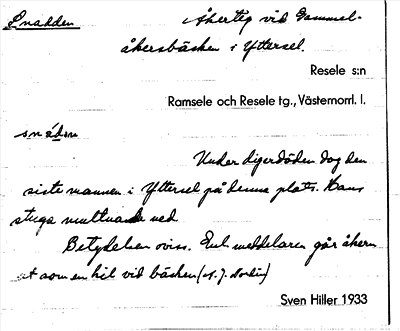 Snadden
Åkerteg vid Gammel-
åkersbäcken i Yttersel.
Resele s:n
Ramsele och Resele tg., Västernorrl. l.
snáden
Under digerdöden dog den
siste mannen i Yttersel på denna plats. Hans
stuga multnade ned
Betydelsen oviss. Enl. meddelaren går åkern
ut som en kil vid bäcken
Sven Hiller 1933